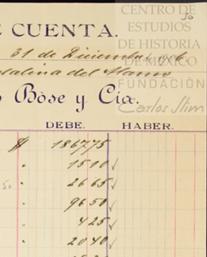 30
CENTRO DE
ESTUDIOS
DE HISTORIA
DE MÉXICO
FUNDACIÓN
Carlos Slim
E CUENTA.
31 de Diciembre
talina del Alamo
Böse y Cia.
DEBE. HABER.
$ 1867.75
" 15 00
" 26 65
" 96 50
" 4 25
" 20 40